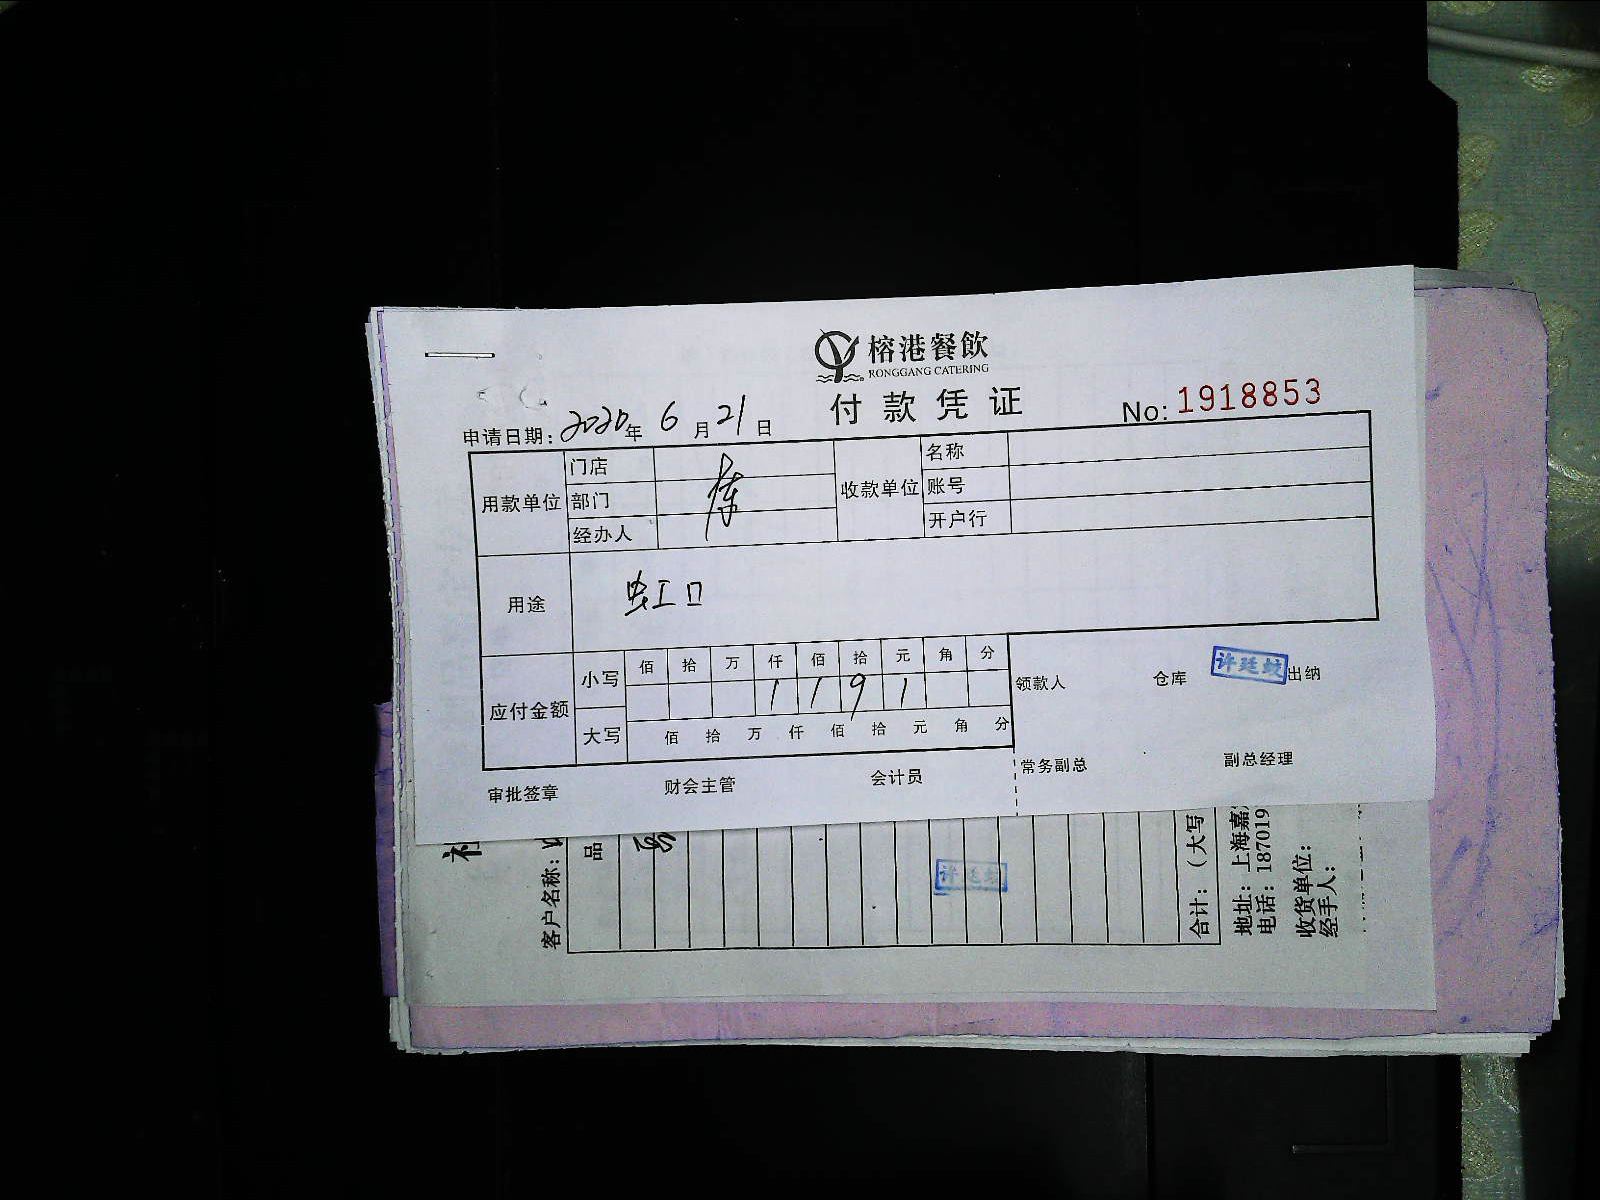 榕港餐飲
RONGGANG CATERING
付款凭证
No: 1918853
申请日期: 2020年 6月 21日
用款单位 门店 收款单位 名称
部门 账号
经办人 开户行
用途 虹口
应付金额 小写 佰 拾 万 仟 佰 拾 元 角 分
1 1 9 1
大写 佰 拾 万 仟 佰 拾 元 角 分
领款人 仓库 许廷蛟 出纳
审批签章 财会主管 会计员 常务副总 副总经理
客户名称:
品
许廷蛟
合计:(大写
地址: 上海嘉
电话: 187019
收货单位:
经手人: